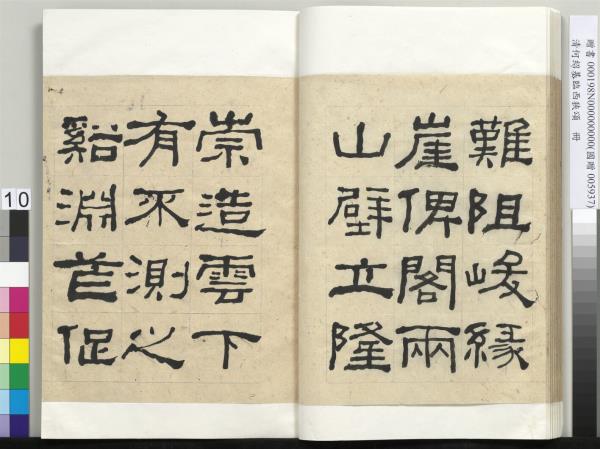 難阻峻緣
崖俾閣兩
山壁立隆
崇造雲下
有不測之
谿淵促
贈書 000198N000000000(國贈 005937)
清何紹基臨西狹頌 冊
10